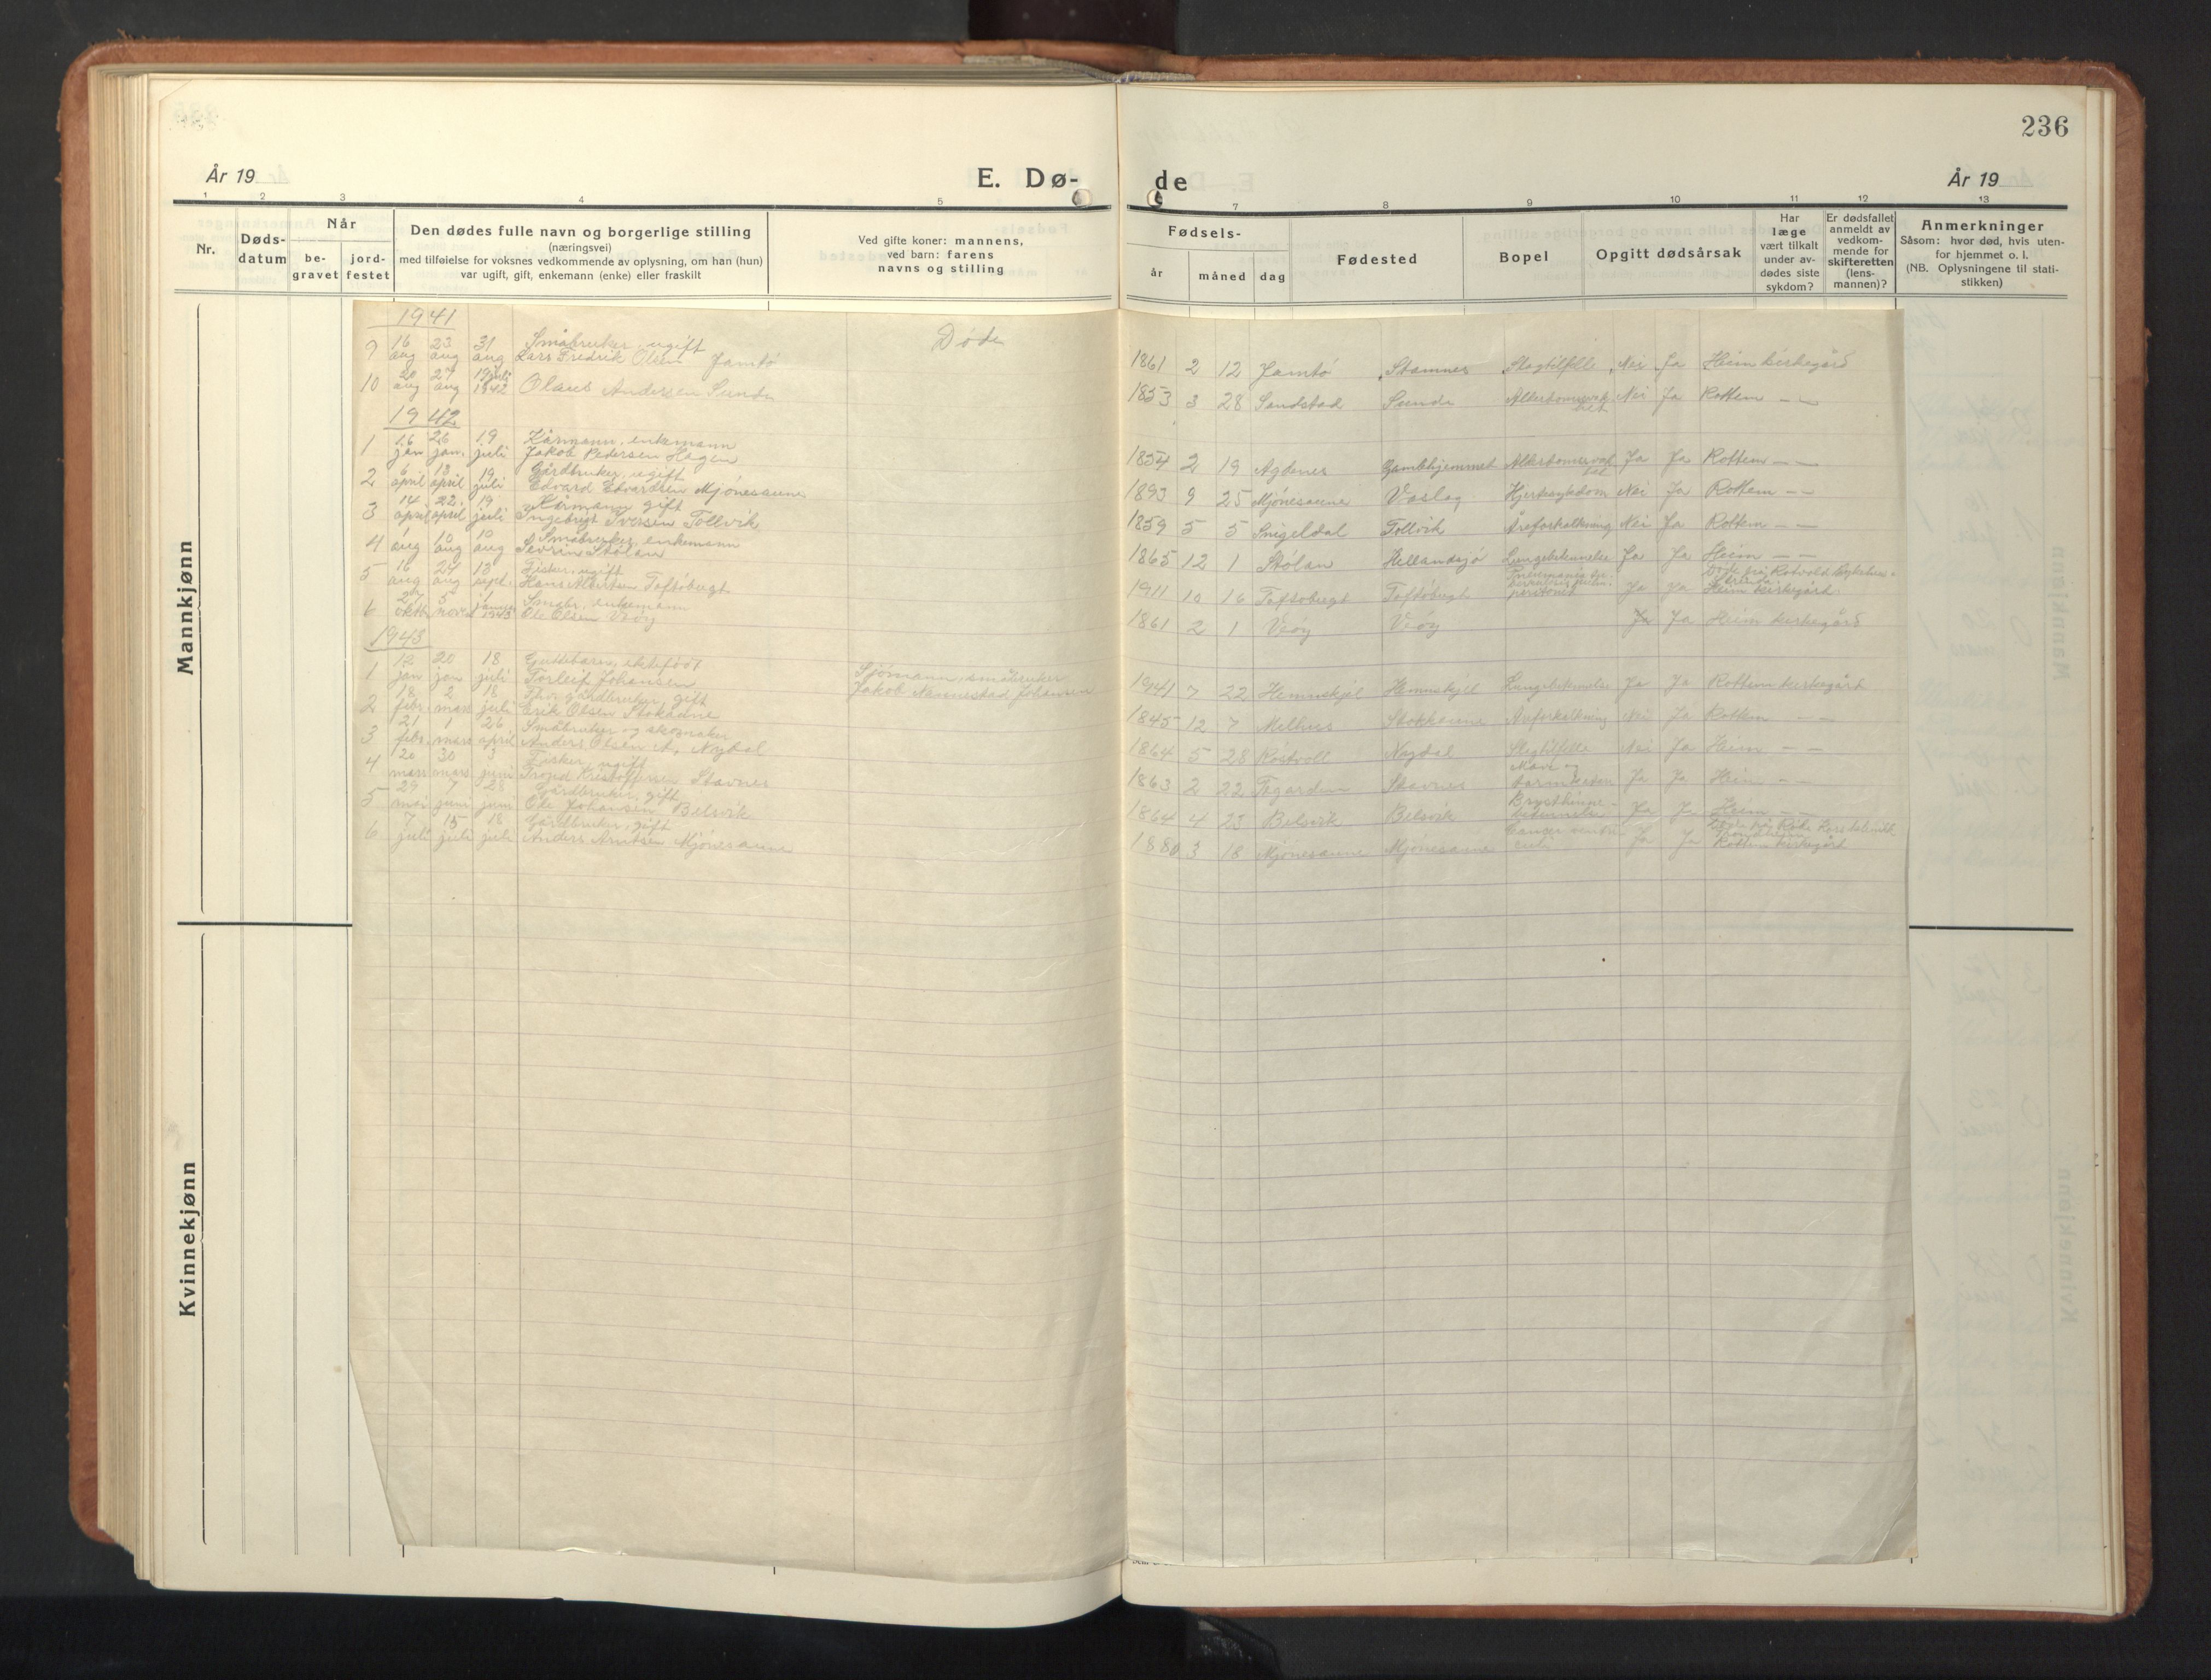 236
År 19
E. Dø-
de
År 19
1 2 3 4 5 7 8 9 10 11 12 13
Nr.
Døds-
datum
Når
be-
gravet
jord-
festet
Den dødes fulle navn og borgerlige stilling
(næringsvei)
med tilføielse for voksnes vedkommende av oplysning, om han (hun)
var ugift, gift, enkemann (enke) eller fraskilt
Ved gifte koner: mannens,
ved barn: farens
navns og stilling
Fødsels-
år
måned
dag
Fødested
Bopel
Opgitt dødsårsak
Har
læge
vært tilkalt
under av-
dødes siste
sykdom?
Er dødsfallet
anmeldt av
vedkom-
mende for
skifteretten
(lens-
mannen)?
Anmerkninger
Såsom: hvor død, hvis uten-
for hjemmet o. l.
(NB. Oplysningene til stati-
stikken)
Mannkjønn
Kvinnekjønn
Døde
1941
9 16 aug 23 aug 31 aug Småbruker, ugift
Lars Fredrik Olsen Jamtø
1861 2 12 Jamtø Stamnes Slagtilfelle Nei Ja Heim kirkegård
10 20 aug 27 aug 19 juli 1942 Olaus Andersen Sunde
1853 3 28 Sandstad Sunde Nei Ja Rottem — —
1942
1 16 jan 26 jan. 19 juli Kårmann, enkemann
Jakob Pedersen Hagen
1854 2 19 Agdenes Gamlehjemmet Ja Ja Rottem — —
2 6 april 13 april 19 juli Gårdbruker, ugift
Edvard Edvardsen Mjønesaune
1893 9 25 Mjønesaune Vaslag Hjertesykdom Nei Ja Rottem — —
3 14 april 22. april 19 juli Kårmann gift
Ingebrigt Iversen Tollvik
1859 5 5 Snigeldal Tollvik Åreforkalkning Nei Ja Rottem — —
4 1 aug 10 aug 10 aug Småbruker, enkemann
Sevrin Stølan
1865 12 1 Stølan Hellandsjø Lungebetennelse Ja Ja Heim — —
5 16 aug 24 aug 13 sept. Fisker, ugift
Hans Albertsen Toftøbugt
1911 10 16 Toftøbugt Toftøbugt peritonit Ja Ja Heim kirkegård
6 27 okt 5 nov. 1 januar 1943 Småbr., enkemann
Ole Olsen Veøy
1861 2 1 Veøy Veøy Ja Ja Heim kirkegård
1943
1 12 jan 20 jan 18 juli Guttebarn, ektefødt
Torleif Johansen
Sjømann, småbruker
Jakob Nannestad Johansen
1941 7 22 Hemnskjel Hemnskjel Lungebetennelse Ja Ja Rottem kirkegård
2 18 febr. 2 mars 18 juli gårdbruker, gift
Erik Olsen Stokkaune
1845 12 7 Melhus Stokkaune Åreforkalkning Nei Ja Rottem — —
3 21 febr. 1 mars 26 april Småbruker og skomaker
Anders Olsen Nygdal
1864 5 28 Røstvoll Nygdal Slagtilfelle Nei Ja Heim — —
4 20 mars 30 mars 3 juni Fisker, ugift
Trond Kristoffersen Stavnes
1863 2 22 Tegarden Stavnes Mave og Ja Ja Heim — —
5 29 mai 7 juni 28 juni Gårdbruker, gift
Ole Johansen Belsvik
1864 4 23 Belsvik Belsvik Brysthinne- Ja Ja Heim — —
6 7 juli 15 juli 18 juli Gårdbruker, gift
Anders Arntsen Mjønesaune
1880 3 18 Mjønesaune Mjønesaune Cancer ventri- culi Ja Ja Rottem kirkegård